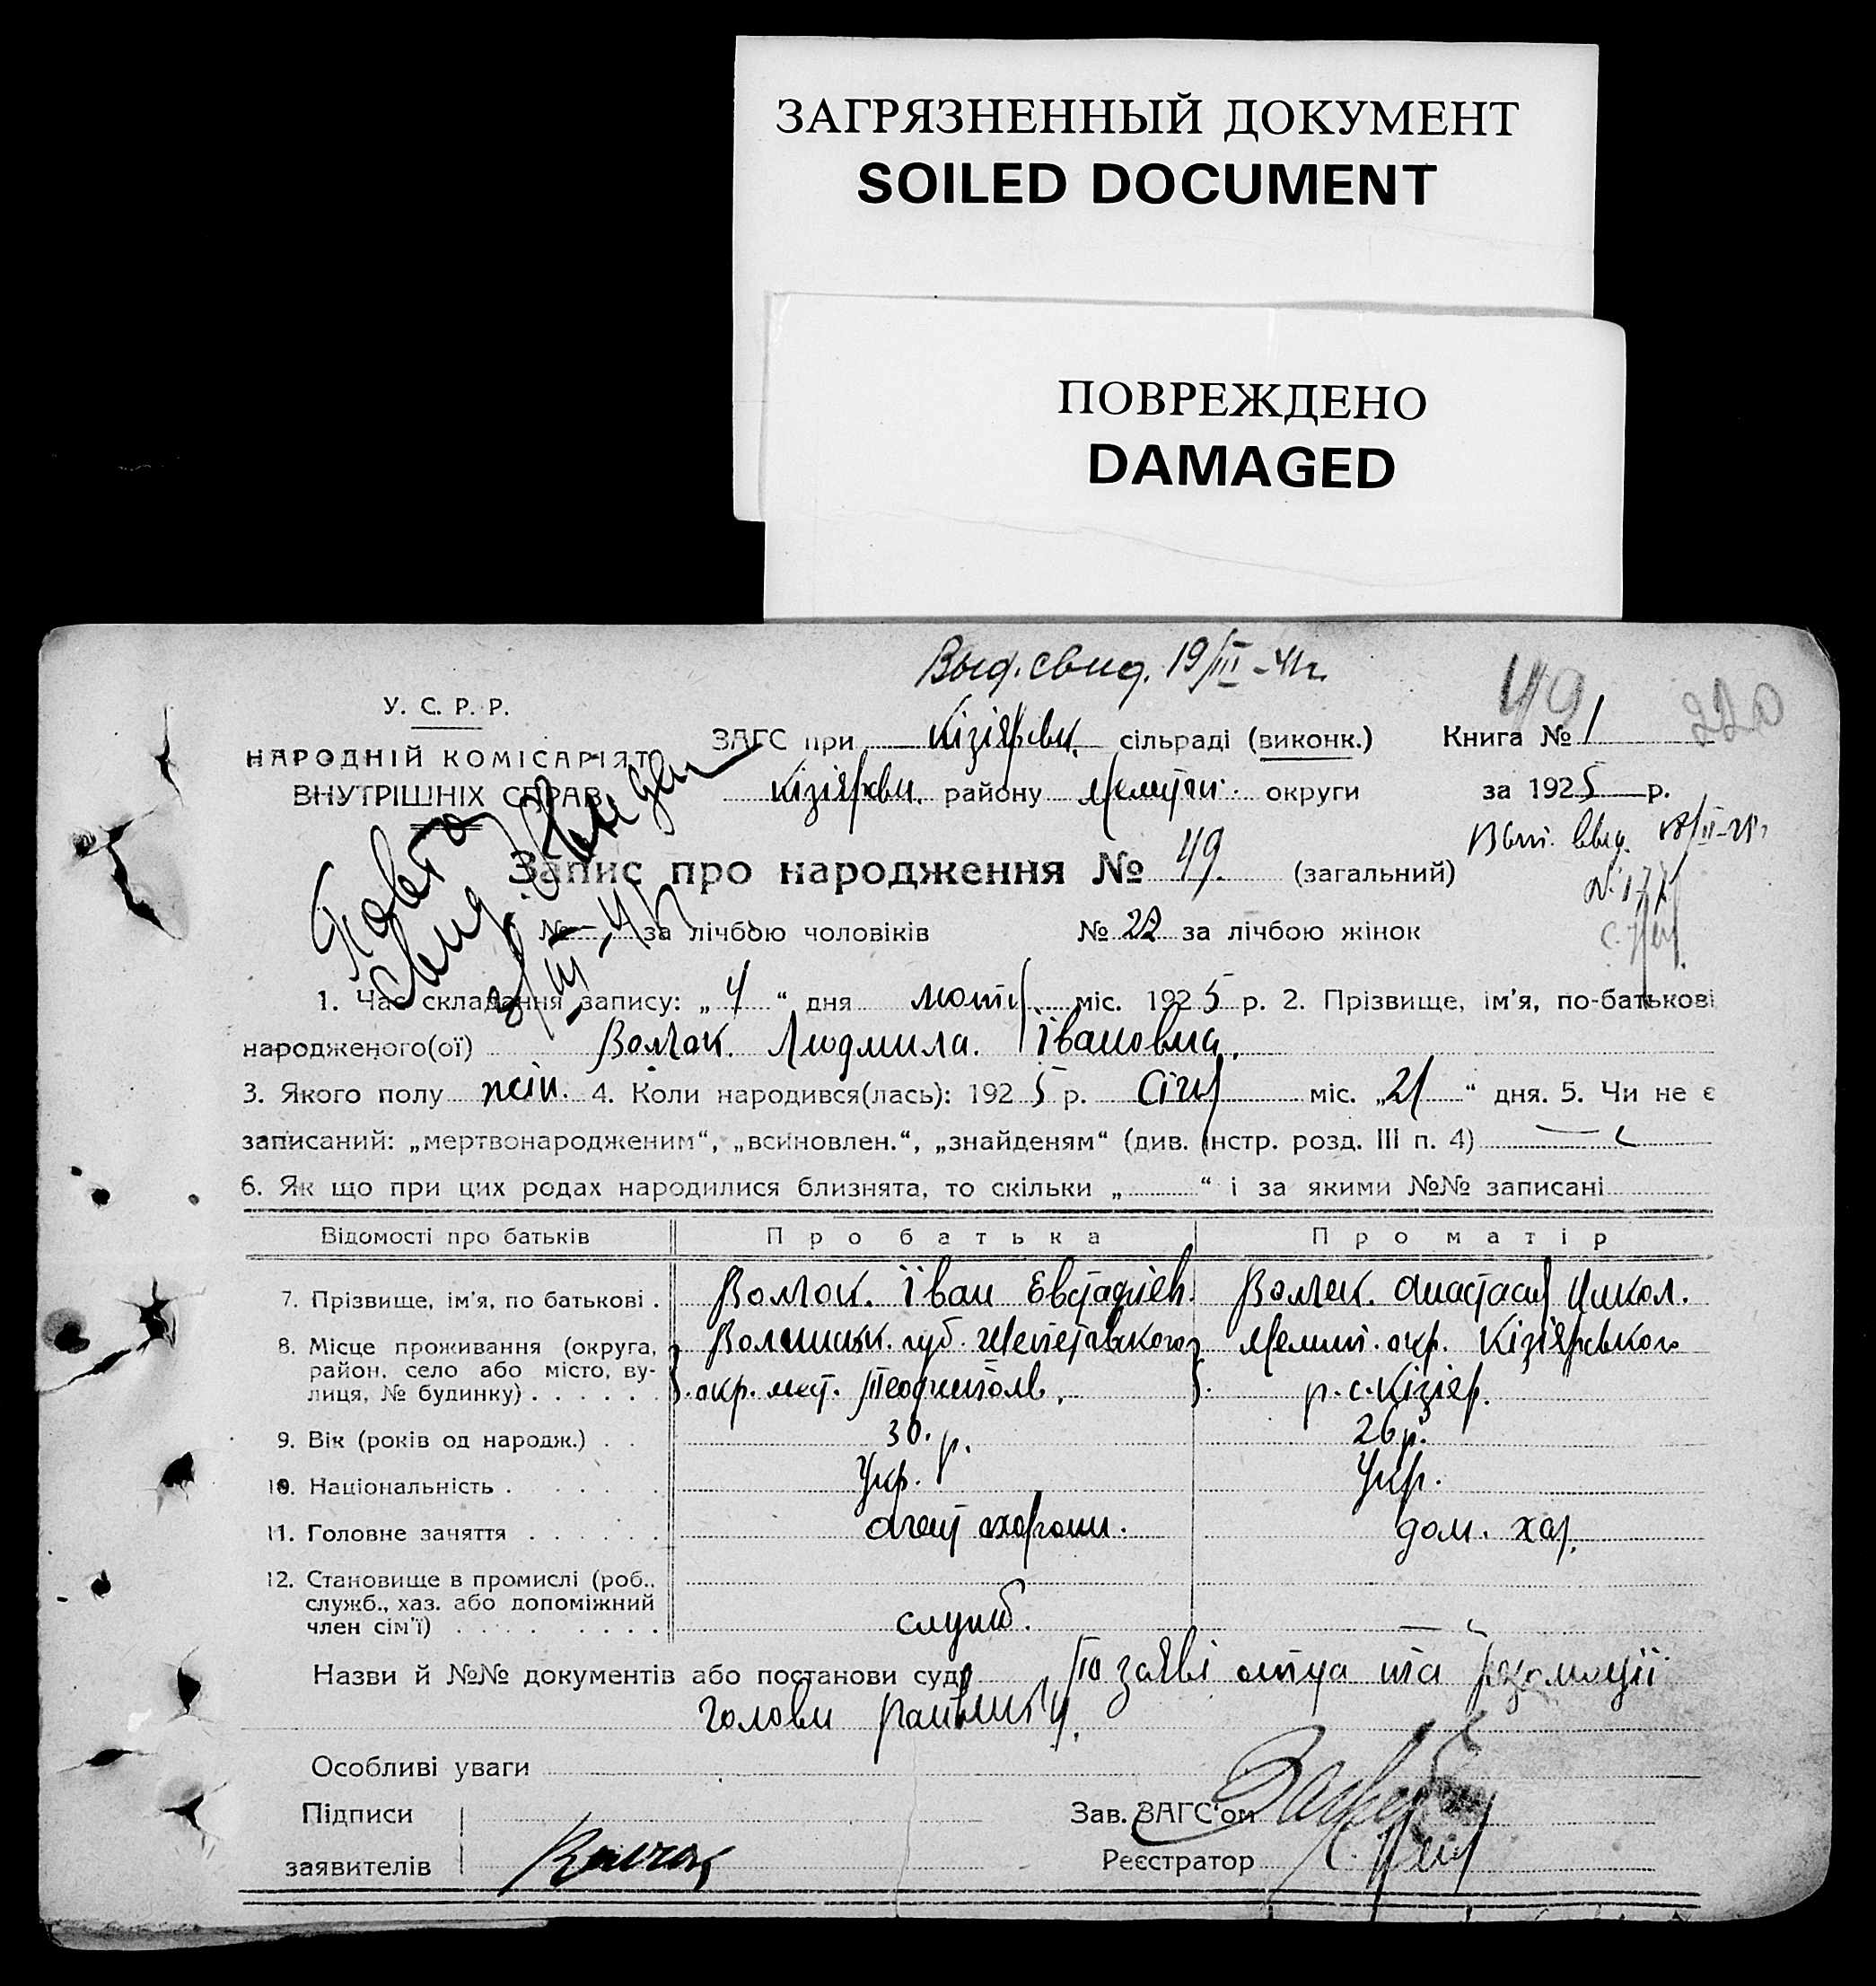 ЗАГРЯЗНЕННЫЙ ДОКУМЕНТ
SOILED DOCUMENT
ПОВРЕЖДЕНО
DAMAGED
Выд. свид. 19/III-41г.
49
220
У. С. Р. Р.
НАРОДНІЙ КОМІСАРІЯТ
ВНУТРІШНІХ СПРАВ
ЗАГС при Кізіярськ. сільраді (виконк.)
Книга № 1
Кізіярськ. району Меліт. округи
за 1925 р.
свид.
№ 177
Запис про народження № 49. (загальний)
№ — за лічбою чоловіків № 22 за лічбою жінок
1. Час складання запису: „ 4 “ дня лютня міс. 1925 р. 2. Прізвище, ім'я, по-батькові
народженого(ої) Волчок. Людмила. Івановна.
3. Якого полу жін. 4. Коли народився(лась): 1925 р. Січня міс. „21“ дня. 5. Чи не є
записаний: „мертвонародженим“, „всиновлен.“, „знайденям“ (див. інстр. розд. III п. 4) —
6. Як що при цих родах народилися близнята, то скільки „ “ і за якими №№ записані
Відомості про батьків Про батька Про матір
7. Прізвище, ім'я, по батькові . Волчок. Іван Волчек. Анастасія Никол.
8. Місце проживання (округа, Волинськ. губ. Шепетівського Меліт. окр. Кізіярського
район, село або місто, ву-
лиця, № будинку) . . . . . . окр. мест. Теофиполь. р. с. Кізіер.
9. Вік (років од народж.) . . 30. р. 26 р.
10. Національність . . . . . . Укр. Укр.
11. Головне заняття . . . . . . агент охорони. дом. хаз.
12. Становище в промислі (роб.,
служб., хаз. або допоміжний
член сім'ї) . . . . . . . . . служб. —
Назви й №№ документів або постанови суду По заяві отца та резолюції
голови райвику.
Особливі уваги
Підписи
заявителів Волчок
Зав. ЗАГС'ом
Реєстратор